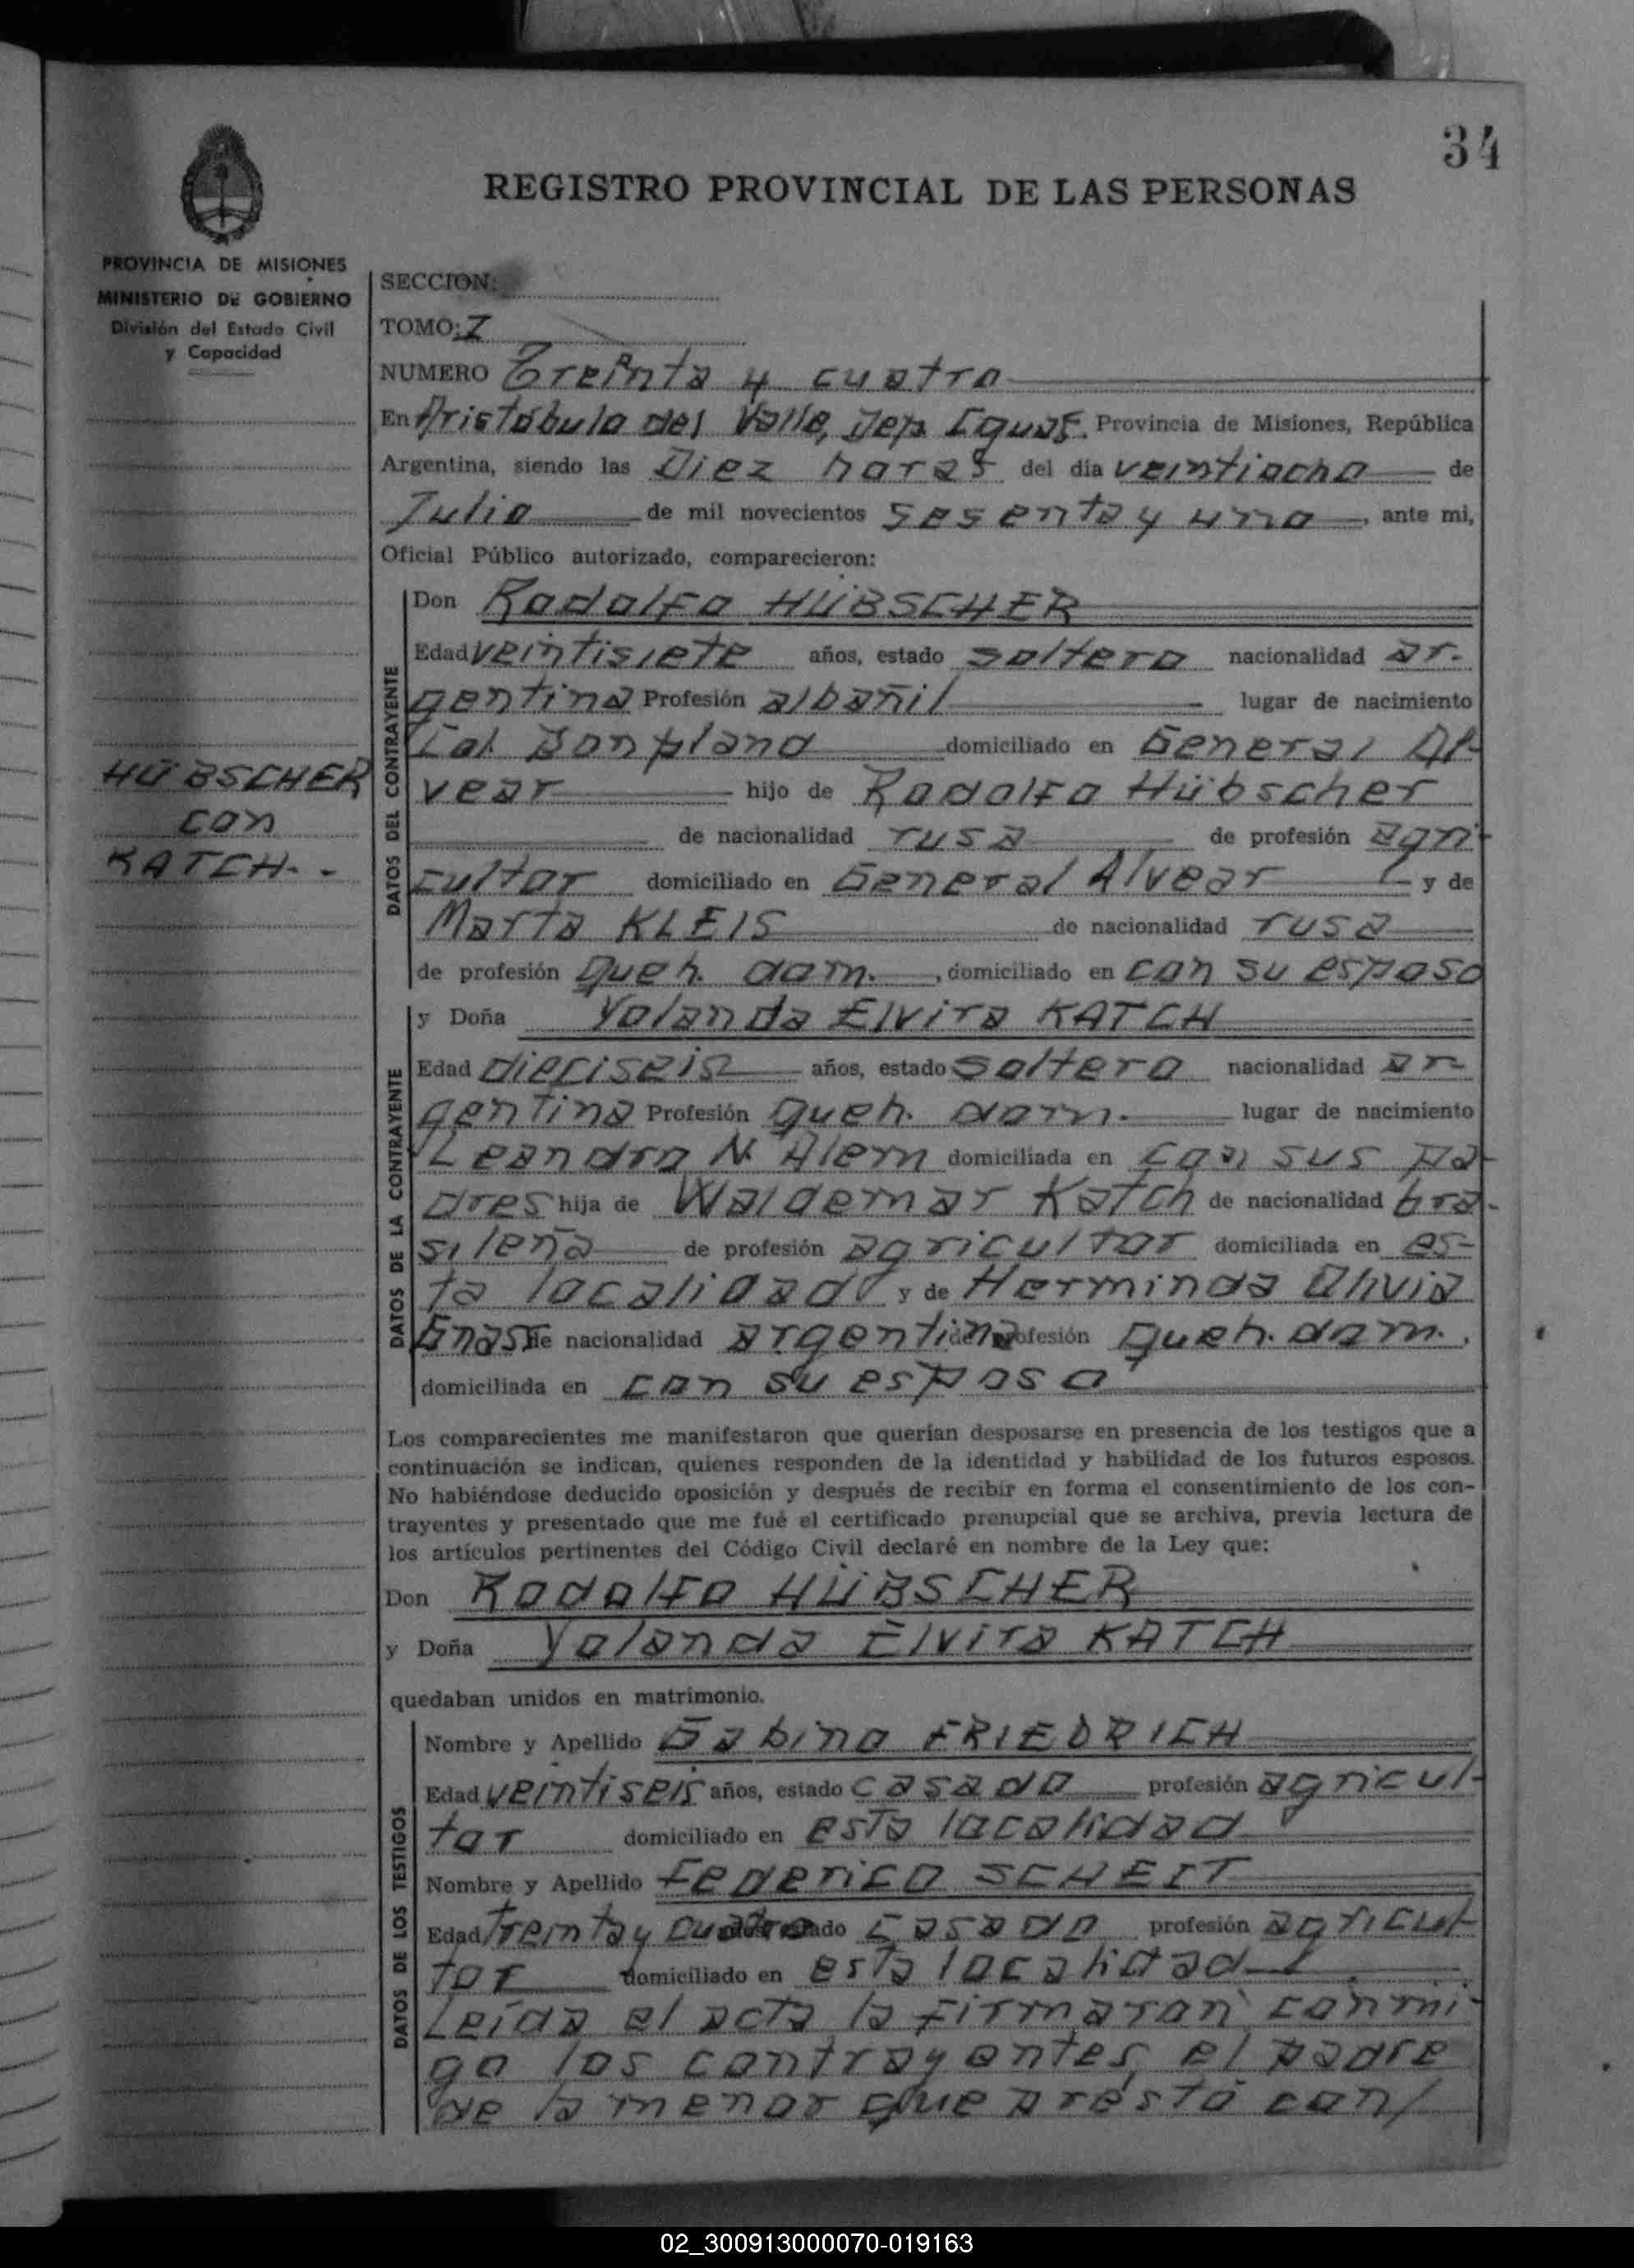 34
REGISTRO PROVINCIAL DE LAS PERSONAS
PROVINCIA DE MISIONES
MINISTERIO DE GOBIERNO
División del Estado Civil
y Capacidad
HÜBSCHER
con
KATCH.-
SECCION:
TOMO: I
NUMERO Treinta y cuatro
En Aristóbulo del Valle, Dep. Cguás. Provincia de Misiones, República
Argentina, siendo las Diez horas del día veintiocho de
Julio de mil novecientos sesenta y uno, ante mi,
Oficial Público autorizado, comparecieron:
DATOS DEL CONTRAYENTE
Don Rodolfo HÜBSCHER
Edad veintisiete años, estado soltero nacionalidad ar-
gentina Profesión albañil lugar de nacimiento
Col. Bonpland domiciliado en General Al-
vear hijo de Rodolfo Hübscher
de nacionalidad rusa de profesión agri-
cultor domiciliado en General Alvear y de
Marta KLEIS de nacionalidad rusa
de profesión queh. dom., domiciliado en con su esposo
DATOS DE LA CONTRAYENTE
y Doña Yolanda Elvira KATCH
Edad dieciseis años, estado soltera nacionalidad ar-
gentina Profesión queh. dom. lugar de nacimiento
Leandro N. Alem domiciliada en con sus pa-
dres hija de Waldemar Katch de nacionalidad bra-
sileña de profesión agricultor domiciliada en es-
ta localidad y de Herminda Olivia
de nacionalidad argentina de profesión queh. dom.,
domiciliada en con su esposo
Los comparecientes me manifestaron que querían desposarse en presencia de los testigos que a
continuación se indican, quienes responden de la identidad y habilidad de los futuros esposos.
No habiéndose deducido oposición y después de recibir en forma el consentimiento de los con-
trayentes y presentado que me fué el certificado prenupcial que se archiva, previa lectura de
los artículos pertinentes del Código Civil declaré en nombre de la Ley que:
Don Rodolfo HÜBSCHER
y Doña Yolanda Elvira KATCH
quedaban unidos en matrimonio.
DATOS DE LOS TESTIGOS
Nombre y Apellido Gabino FRIEDRICH
Edad veintiseis años, estado casado profesión agricul-
tor domiciliado en esta localidad
Nombre y Apellido Federico SCHEIT
Edad treinta y cuatro estado casado profesión agricul-
tor domiciliado en esta localidad
Leída el acta la firmaron conmi-
go los contrayentes, el padre
de la menor que prestó con/
02_300913000070-019163